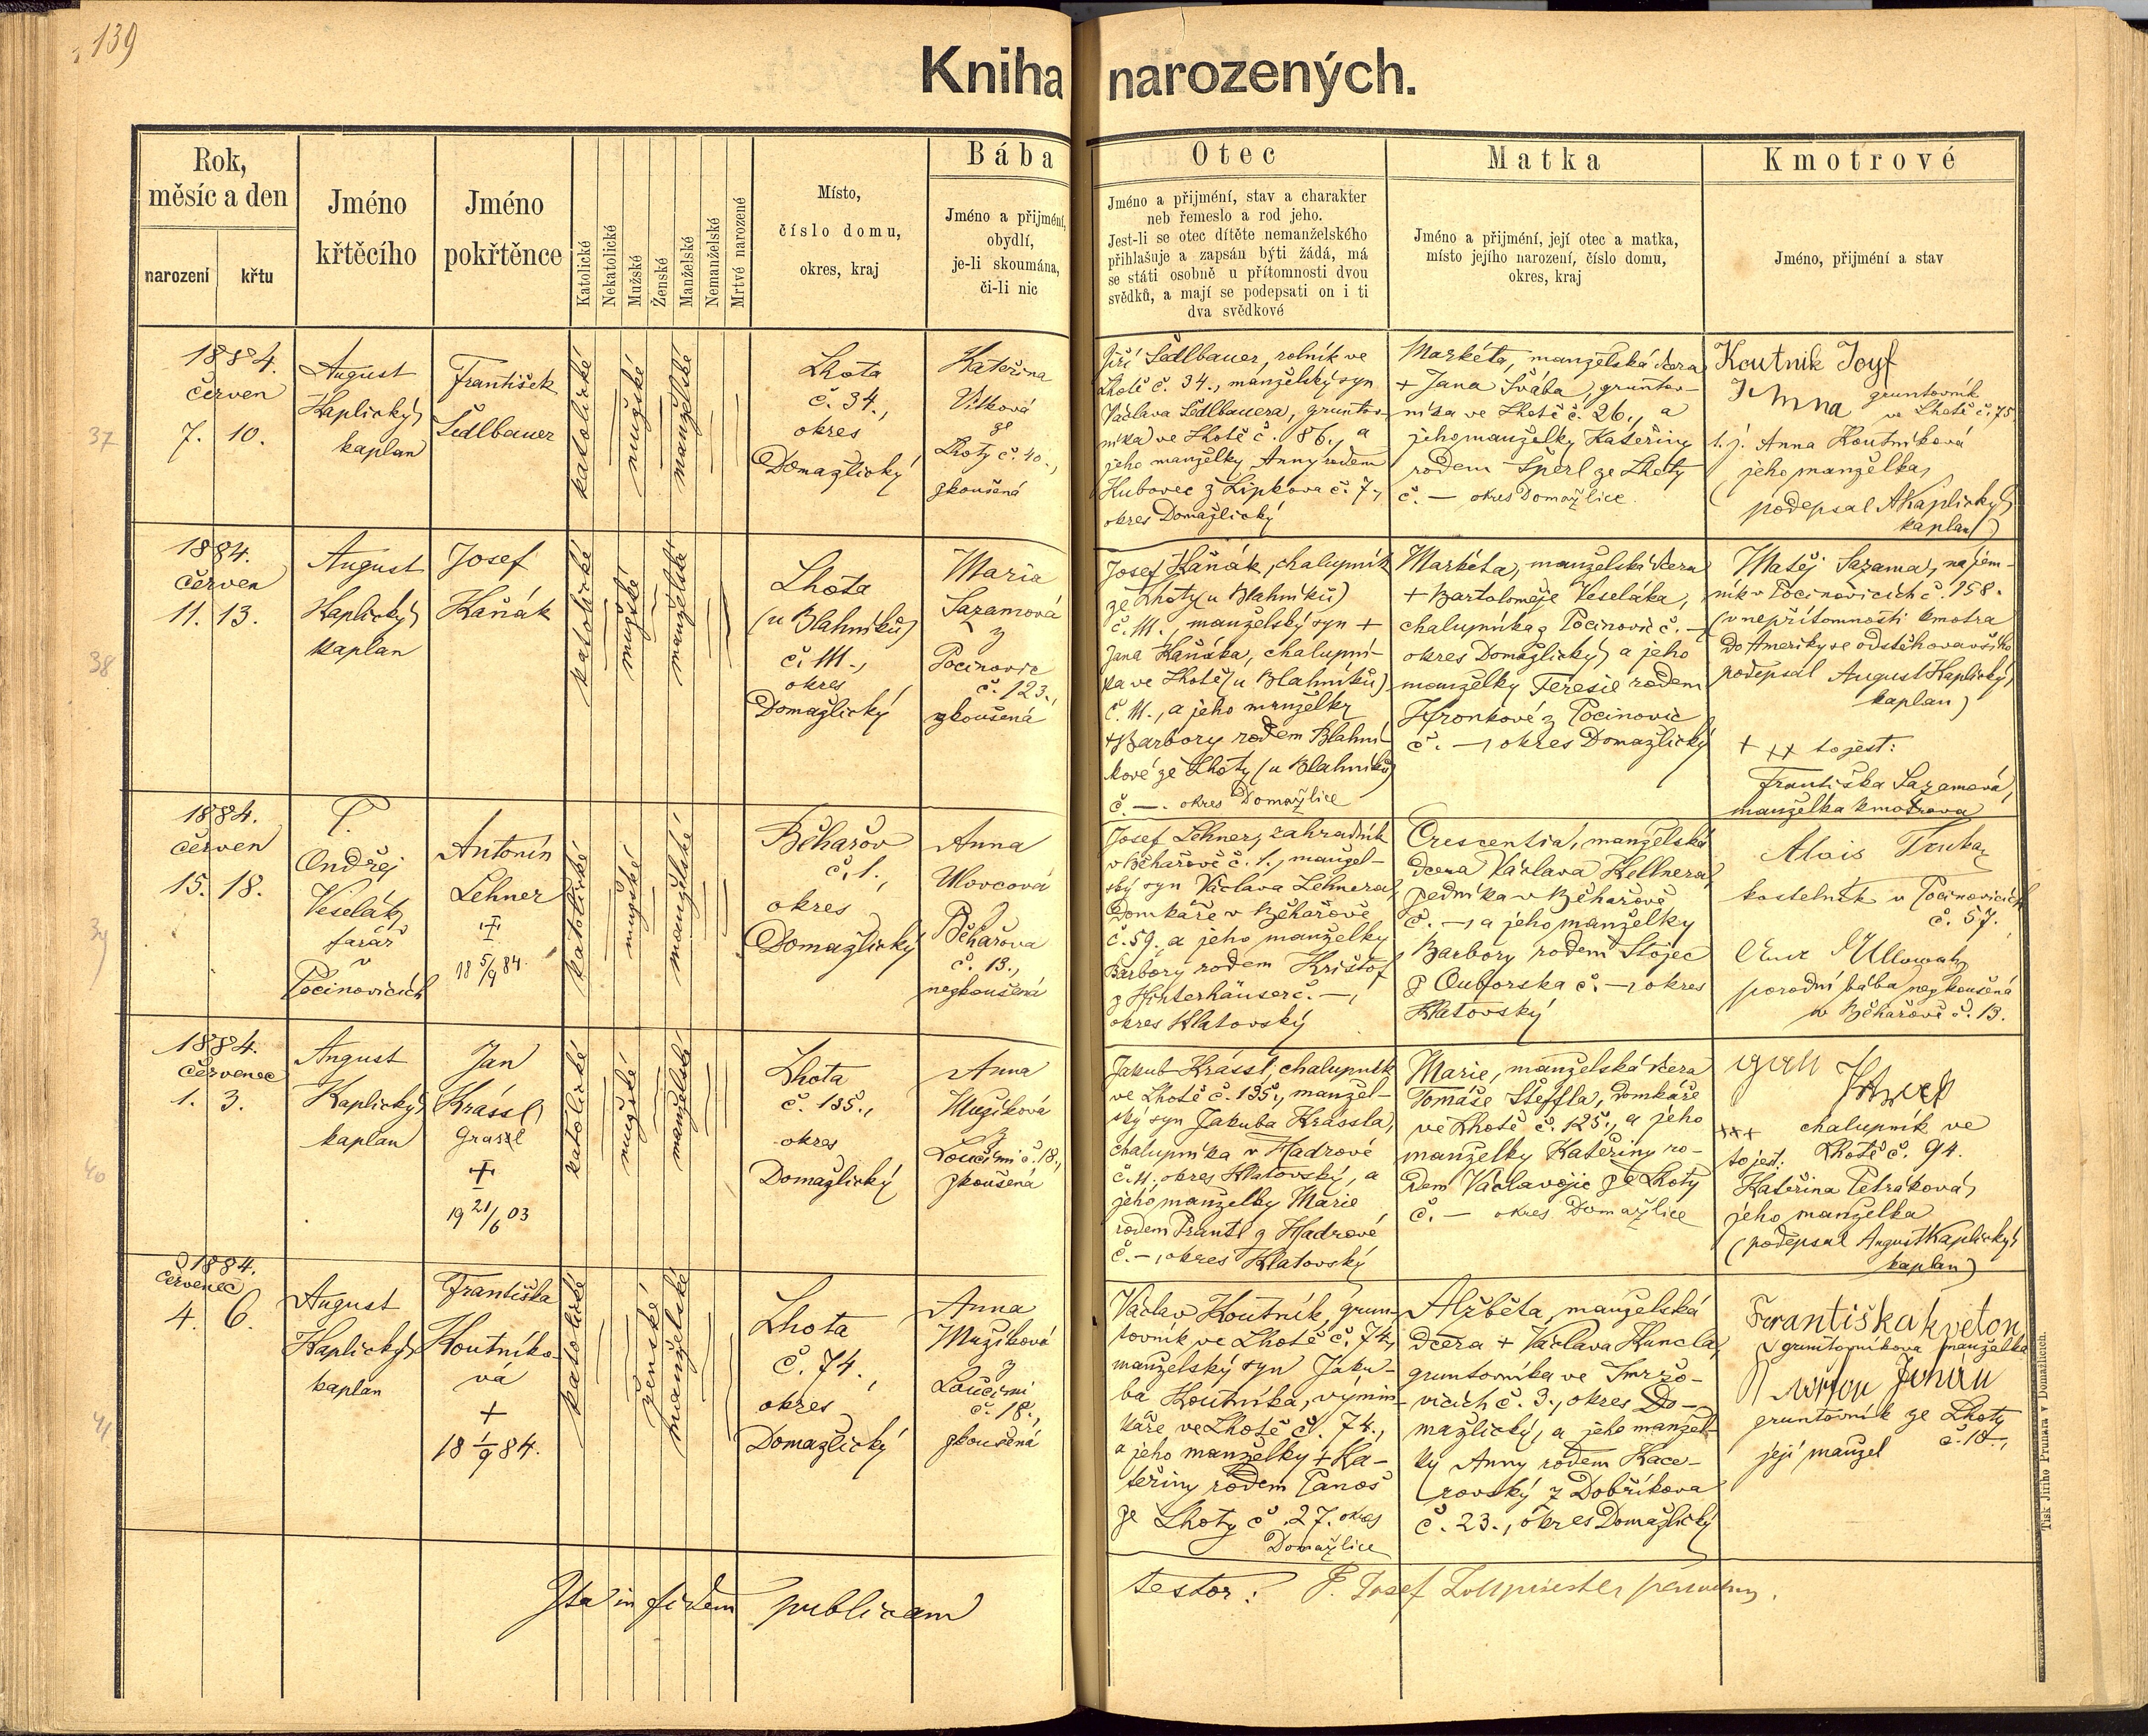 139
Kniha narozených.
Rok,
měsíc a den
narození
křtu
Jméno
křtěcího
Jméno
pokřtěnce
Katolické
Nekatolické
Mužské
Ženské
Manželské
Nemanželské
Mrtvě narozené
Místo,
číslo domu,
okres, kraj
Bába
Jméno a přijmení,
obydlí,
je-li skoumána,
či-li nic
Otec
Jméno a přijmení, stav a charakter
neb řemeslo a rod jeho.
Jest-li se otec dítěte nemanželského
přihlašuje a zapsán býti žádá, má
se státi osobně u přítomnosti dvou
svědků, a mají se podepsati on i ti
dva svědkové
Matka
Jméno a přijmení, její otec a matka,
místo jejího narození, číslo domu,
okres, kraj
Kmotrové
Jméno, přijmení a stav
37
1884.
červen
7. 10.
August
Kaplický
kaplan
František
Šedlbauer
katolické
mužské
manželské
Lhota
č. 34.,
okres
Domažlický
Kateřina
Vítková
ze
Lhoty č. 40.,
zkoušená
Jiří Šedlbauer, rolník ve
Lhotě č. 34., manželský syn
Václava Šedlbauera, gruntov-
níka ve Lhotě č. 86., a
jeho manželky Anny rodem
Kubovec z Lipkova č. 7.,
okres Domažlický
Markéta, manželská dcera
+ Jana Švába, gruntov-
níka ve Lhotě č. 26., a
jeho manželky Kateřiny
rodem Šperl ze Lhoty
č. — okres Domažlice
Koutnik Josef
gruntovník
ve Lhotě č. 75
t. j. Anna Koutníková
jeho manželka,
(podepsal A Kaplický
kaplan)
38
1884.
červen
11. 13.
August
Kaplický
kaplan
Josef
Kaňák
katolické
mužské
manželské
Lhota
(u Blahníků)
č. 111.,
okres
Domažlický
Maria
Sazamová
z
Pocinovic
č. 123.,
zkoušená
Josef Kaňák, chalupník
ze Lhoty (u Blahníků)
č. 111., manželský syn +
Jana Kaňáka, chalupní-
ka ve Lhotě (u Blahníků)
č. 111., a jeho manželky
+ Barbory rodem Blahní-
kové ze Lhoty (u Blahníků)
č —. okres Domažlice
Markéta, manželská dcera
+ Bartoloměje Veseláka,
chalupníka z Pocinovic č. —
okres Domažlický a jeho
manželky Teresie rodem
Hronkové z Pocinovic
č. —, okres Domažlický
Matěj Sazama, nájem-
ník v Pocinovicích č. 158.
(v nepřítomnosti kmotra
do Ameriky se odstěhovavšího
podepsal August Kaplický,
kaplan)
+ ++ to jest:
Františka Sazamová,
manželka kmotrova
39
1884.
červen
15. 18.
P.
Ondřej
Veselák,
farář
v
Pocinovicích
Antonín
Lehner
+
18 5/9 84.
katolické
mužské
manželské
Běhařov
č. 1.,
okres
Domažlický
Anna
Ulovcová
z
Běhařova
č. 13.,
nezkoušená
Josef Lehner, zahradník
v Běhařově č. 1., manžel-
ský syn Václava Lehnera,
domkáře v Běhařově
č. 59. a jeho manželky
Barbory rodem Krištof
z Hinterhäuser č. —,
okres Klatovský
Crescentia, manželská
dcera Václava Kellnera,
zedníka v Běhařově
č. —, a jeho manželky
Barbory rodem Stojec
z Outorska č. —, okres
Klatovský
Alois
kostelník v Pocinovicích
č. 57.
porodní bába nezkoušená
v Běhařově č. 13.
40
1884.
červenec
1. 3.
August
Kaplický
kaplan
Jan
Krássl
Grassl
+
19 21/6 03
katolické
mužské
manželské
Lhota
č. 135.,
okres
Domažlický
Anna
Mužíková
z
Loučimi č. 18.,
zkoušená
Jakub Krássl, chalupník
ve Lhotě č. 135., manžel-
ský syn Jakuba Krássla,
chalupníka v Hadrově
č. 11. okres Klatovský, a
jeho manželky Marie
rodem Prantl z Hadrově
č. —, okres Klatovský
Marie, manželská dcera
Tomáše Šteffla, domkáře
ve Lhotě č. 125., a jeho
manželky Kateřiny ro-
dem Václavojic ze Lhoty
č. — okres Domažlice
+++ chalupník ve
to jest: Lhotě č. 94.
Kateřina Petráková,
jeho manželka
(podepsal August Kaplický,
kaplan)
41
1884.
červenec
4. 6.
August
Kaplický
kaplan
Františka
Koutníko-
vá
+
18 1/9 84.
katolické
ženské
manželské
Lhota
č. 74.,
okres
Domažlický
Anna
Mužíková
z
Loučimi
č. 18.,
zkoušená
Václav Koutník, grun-
tovník ve Lhotě č. 74,
manželský syn Jaku-
ba Koutníka, výmin-
káře ve Lhotě č. 74.,
a jeho manželky + Ka-
teřiny rodem Panoš
ze Lhoty č. 27. okres
Domažlice
Alžběta, manželská
dcera + Václava Kuncla,
gruntovníka ve Smržo-
vicích č. 3., okres Do-
mažlický, a jeho manžel-
ky Anny rodem Kace-
rovský z Dobříkova
č. 23., okres Domažlický
Františka kveton
gruntovníkova manželka
gruntovník ze Lhoty
č. 10.,
její manžel
Ita in fidem publicam
testor: P. Josef
Tisk Jiřího Prunara v Domažlicích.